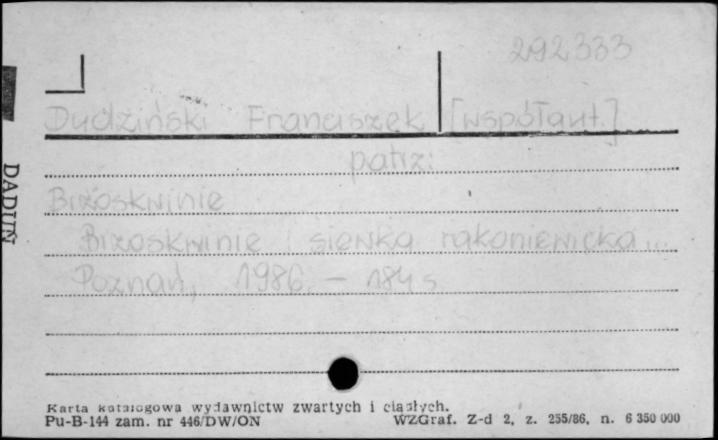 292333
Dudziński Franciszek [współaut.]
patrz:
Brzoskwinie
Brzoskwinie i siewka rakoniewicka...
Poznań, 1986. - 184 s
DADUŃ
Karta katalogowa wydawnictw zwartych i ciągłych.
Pu-B-144 zam. nr 446/DW/ON WZGraf. Z-d 2, z. 255/86, n. 6 350 000